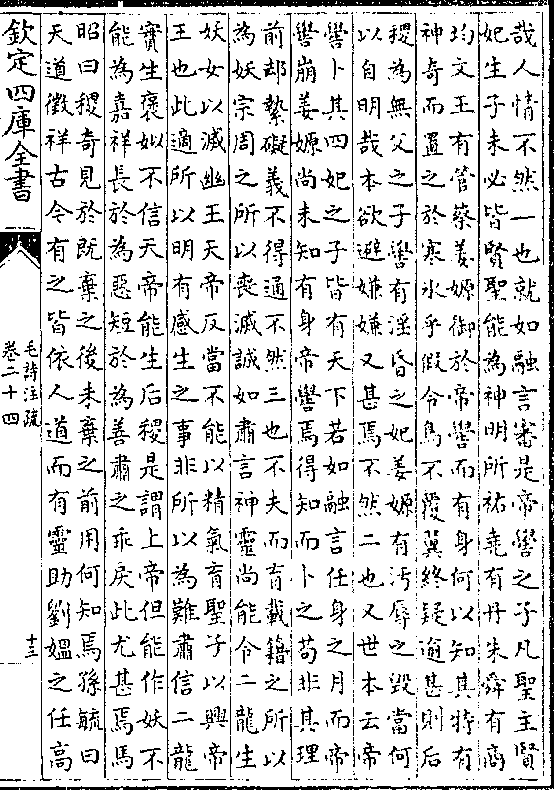 哉人情不然一也就如融言審是帝嚳之子凡聖主賢
妃生子未必皆賢聖能為神明所祐堯有丹朱舜有商
均文王有管蔡姜嫄御於帝嚳而有身何以知其特有
神奇而置之於寒氷乎假令鳥不覆翼終疑逾甚則后
稷為無父之子嚳有淫昏之妃姜嫄有汚辱之毀當何
以自明哉本欲避嫌嫌又甚焉不然二也又世本云帝
嚳卜其四妃之子皆有天下若如融言任身之月而帝
嚳崩姜嫄尚未知有身帝嚳焉得知而卜之苟非其理
前却縶礙義不得通不然三也不夫而育載籍之所以
為妖宗周之所以喪滅誠如肅言神靈尚能令二龍生
妖女以滅幽王天帝反當不能以精氣育聖子以興帝
王也此適所以明有感生之事非所以為難肅信二龍
實生褒姒不信天帝能生后稷是謂上帝但能作妖不
能為嘉祥長於為惡短於為善肅之乖戾此尤甚焉馬
昭曰稷奇見於既棄之後未棄之前用何知焉孫毓曰
天道徵祥古今有之皆依人道而有靈助劉媼之任高
欽定四庫全書
毛詩注疏
卷二十四
十三